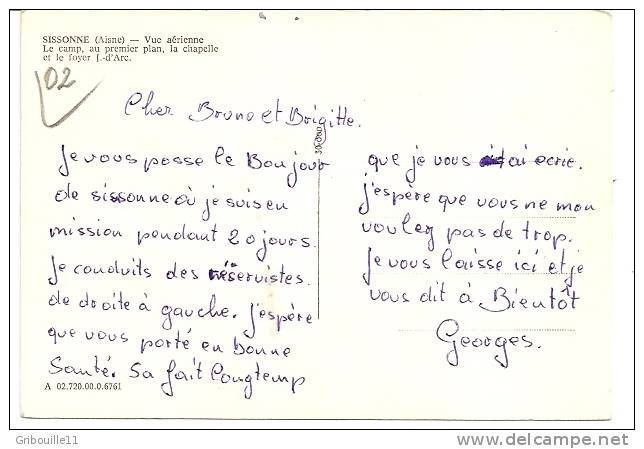 SISSONNE (Aisne) — Vue aérienne
Le camp, au premier plan, la chapelle
et le foyer J.-d'Arc.
02
Cher Bruno et Brigitte.
Je vous passe le Bonjour
de sissonne où je suis en
mission pendant 20 jours.
Je conduits des réservistes.
de droite à gauche. j'espère
que vous porté en bonne
Santé. Sa fait Longtemp
que je vous ai ecrie.
j'espère que vous ne mon
vouley pas de trop.
Je vous laisse ici et je
vous dit à Bientôt
Georges.
A 02.720.00.0.6761
Gribouille11
delcampe.net